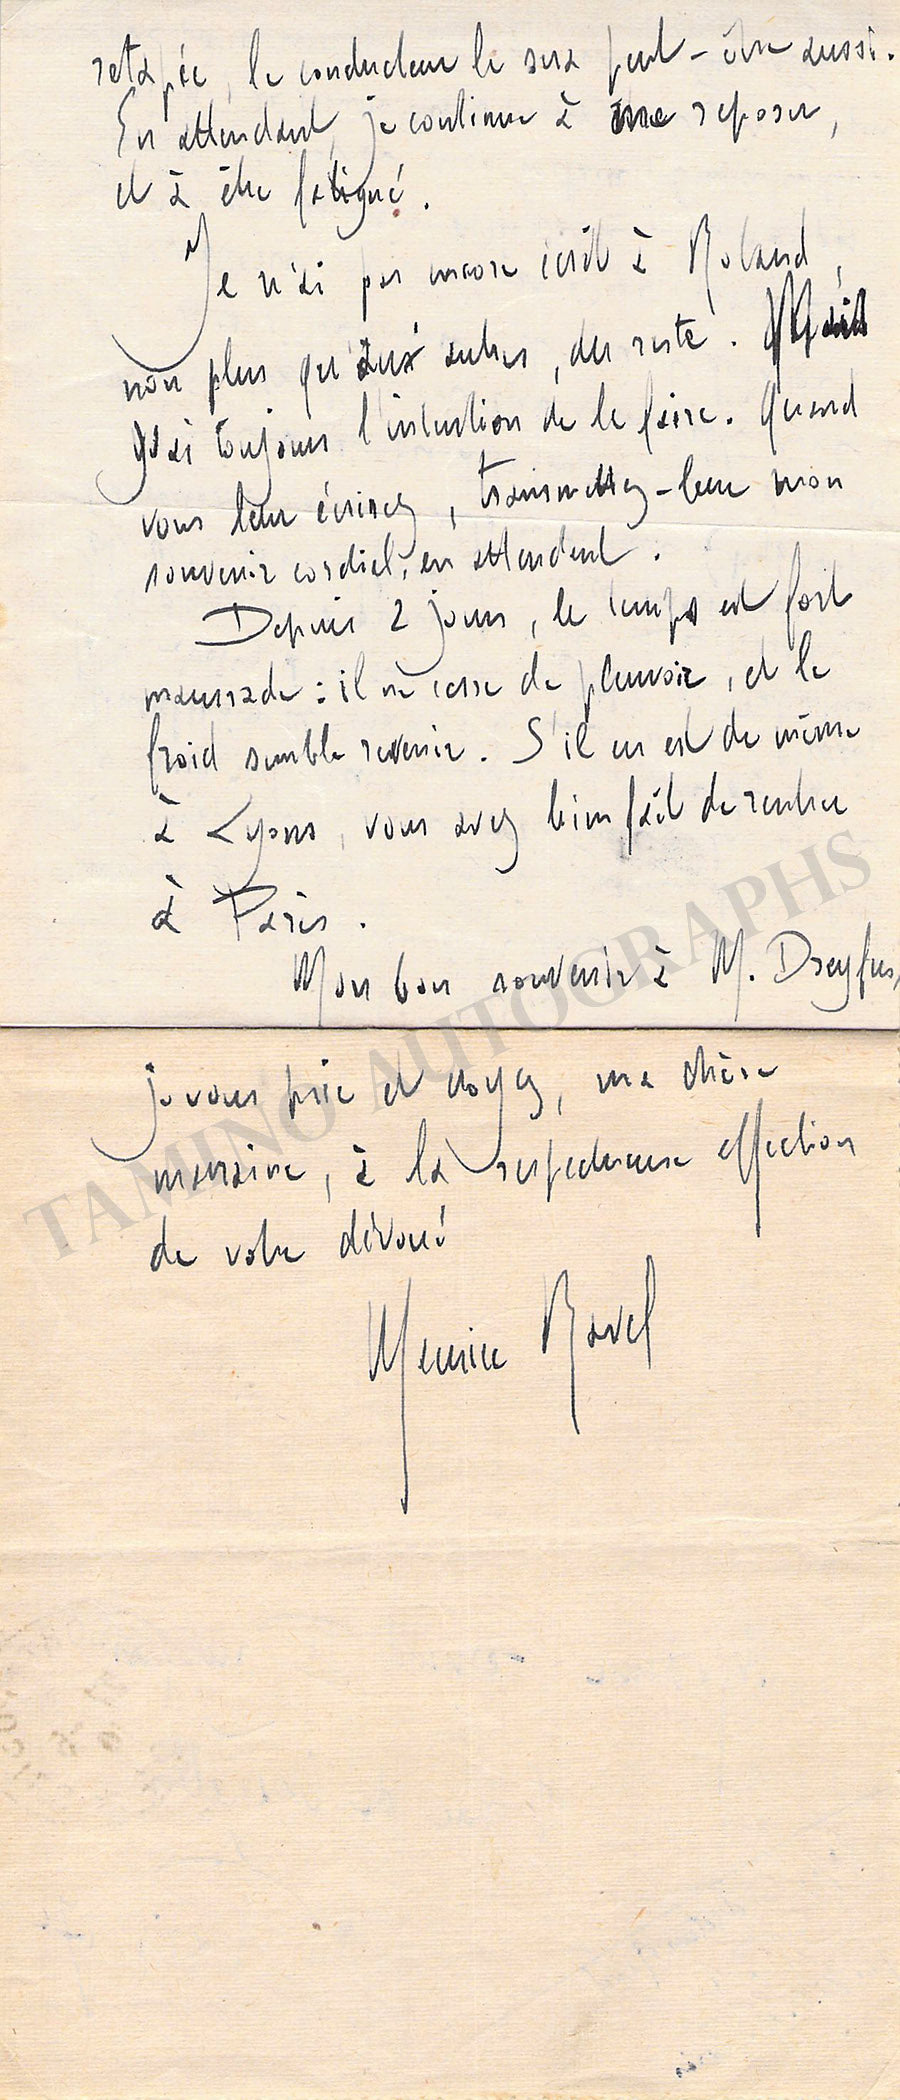 retapée, le conducteur le sera peut-être aussi.
En attendant, je continue à me reposer,
et à être fatigué.
Je n'ai pas encore écrit à Roland,
non plus qu'aux autres, du reste. Mais
j'ai toujours l'intention de le faire. Quand
vous leur écrirez, transmettez-leur mon
souvenir cordial, en attendant.
Depuis 2 jours, le temps est fort
maussade : il ne cesse de pleuvoir, et le
froid semble revenir. S'il en est de même
à Lyons, vous avez bien fait de rentrer
à Paris.
Mon bon souvenir à M. Dreyfus,
je vous prie et croyez, ma chère
marraine, à la respectueuse affection
de votre dévoué
Maurice Ravel
TAMINO AUTOGRAPHS